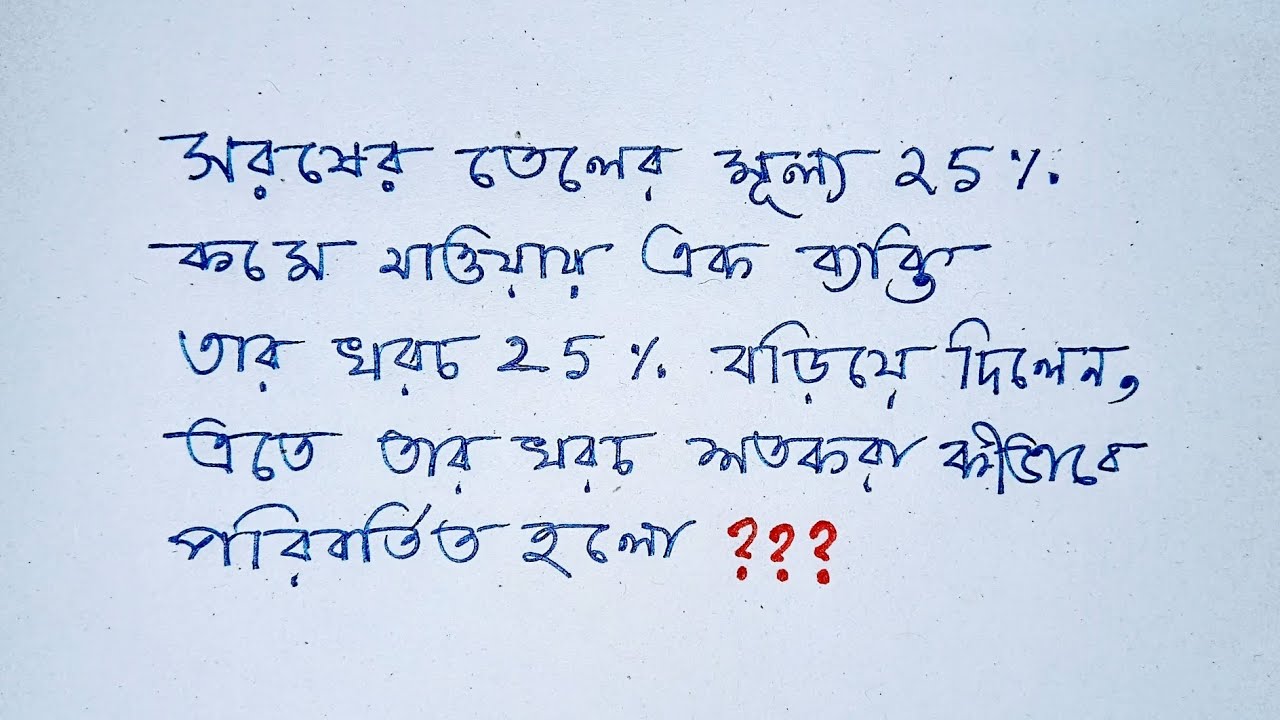 সরষের তেলের মূল্য 25%
কমে যাওয়ায় এক ব্যক্তি
তার খরচ 25% বড়িয়ে দিলেন,
এতে তার খরচ শতকরা কীভাবে
পরিবর্তিত হলো ???